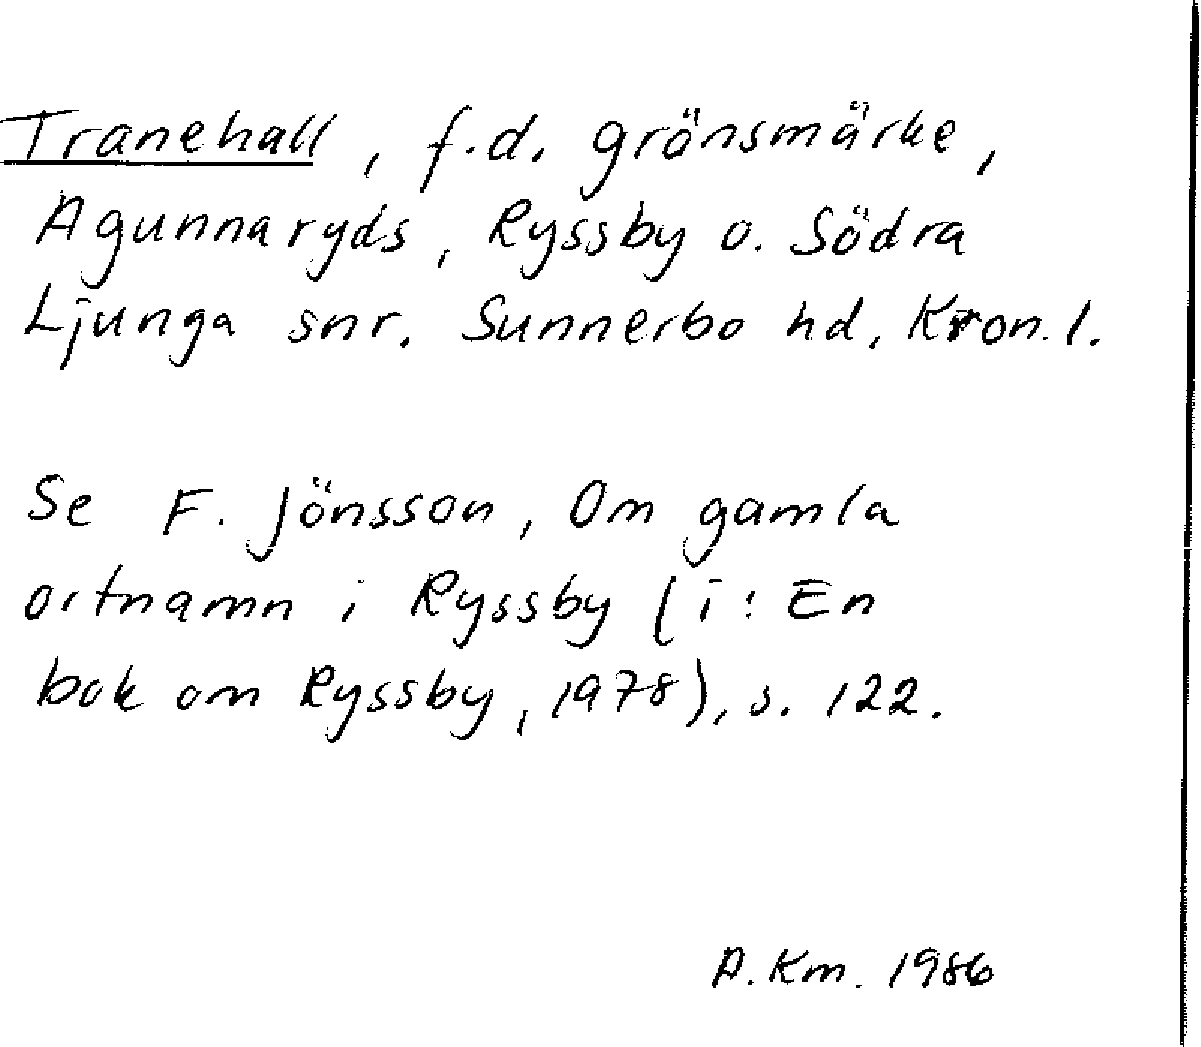 Tranehall, f.d. gränsmärke,
Agunnaryds, Ryssby o. Södra
Ljunga snr. Sunnerbo hd, Kron.l.
Se F. Jönsson, Om gamla
ortnamn i Ryssby (i: En
bok om Ryssby, 1978), s. 122.
A. Km. 1986